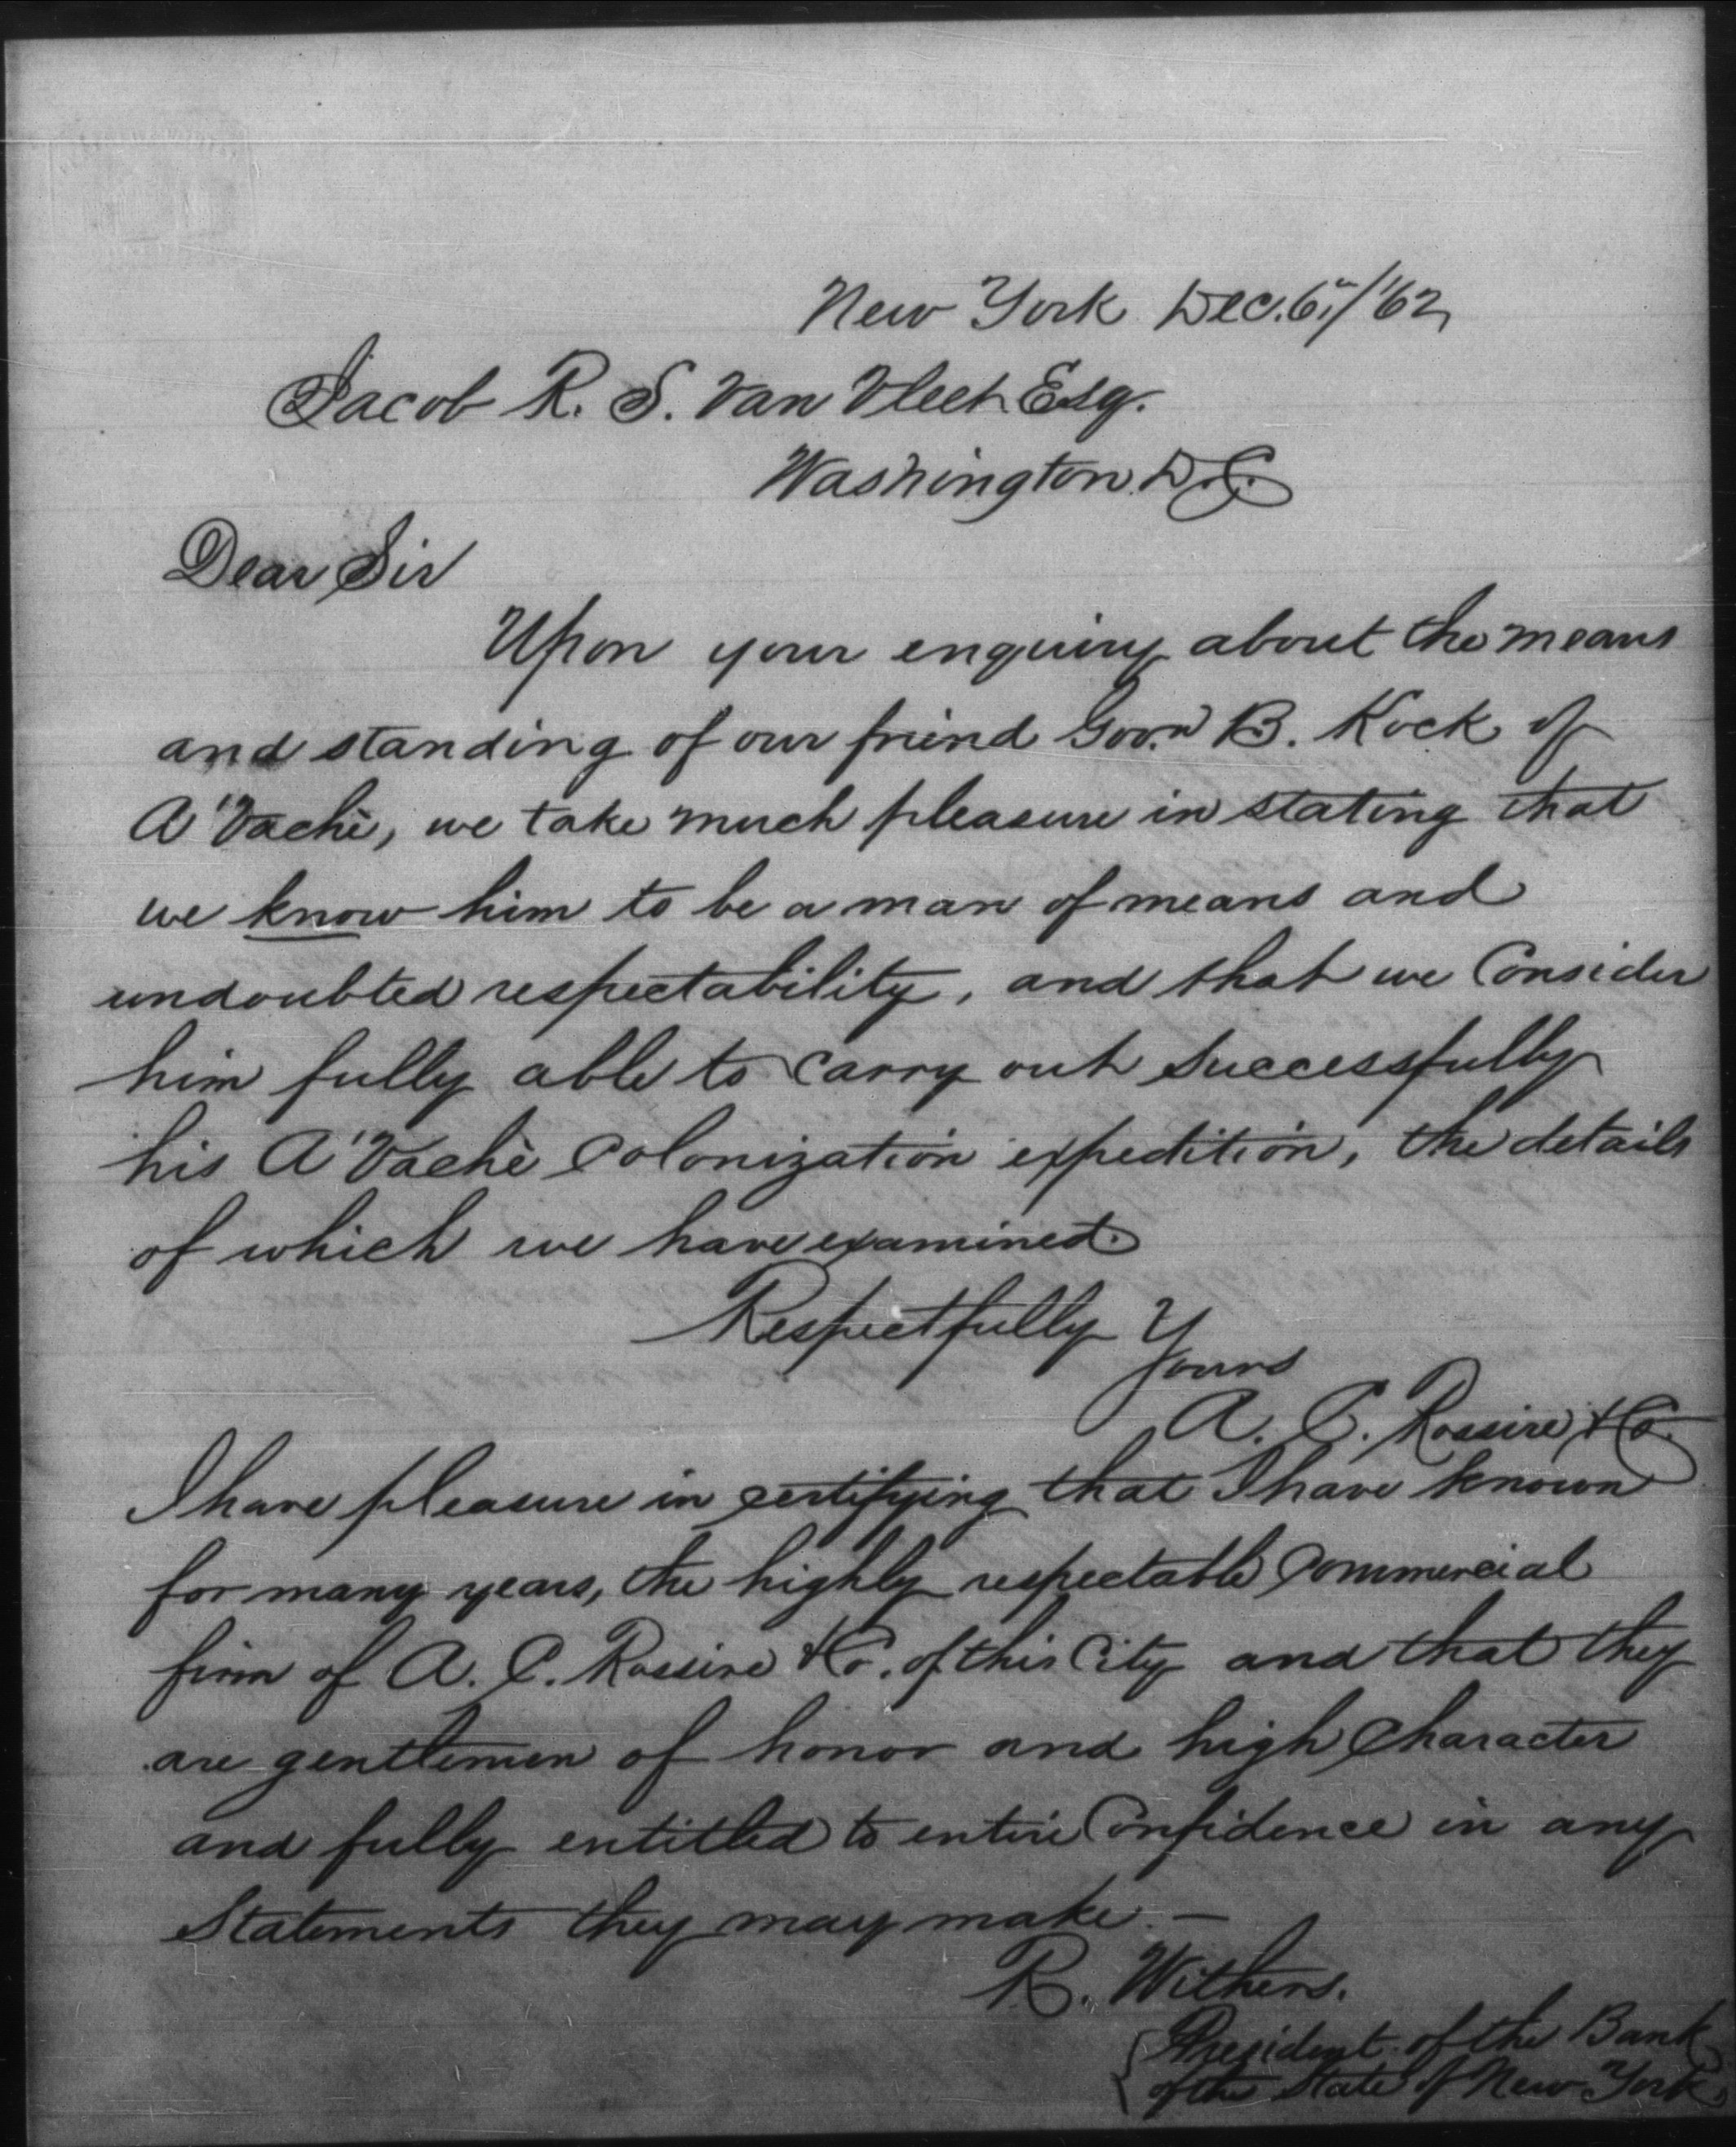 New York Dec. 6th/'62
Jacob R. S. Van Vleet Esq.
Washington D.C.
Dear Sir
Upon your enquiry about the means
and standing of our friend Gov.n B. Kock of
A'Vachè, we take much pleasure in stating that
we know him to be a man of means and
undoubted respectability, and that we Consider
him fully able to carry out successfully
his A'Vachè Colonization expedition, the details
of which we have examined.
Respectfully Y
Yours
A. C. Rossire & Co.
I have pleasure in certifying that I have known
for many years, the highly respectable Commercial
firm of A. C. Rossire & Co. of this City and that they
are gentlemen of honor and high Character
and fully entitled to entire Confidence in any
Statements they may make. —
R. Withers.
President of the Bank
of the State of New York.